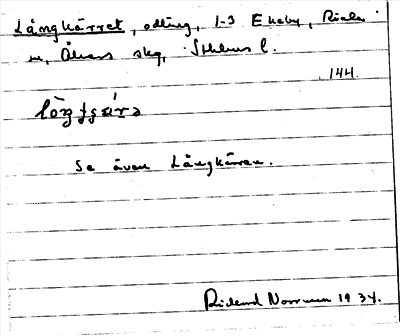 Långkärret, odling, 1-3 Ekeby, Riala
sn, Åkers skg, Sthlms l.
144.
Se även Långkärren.
Rickard Norrman 1934.